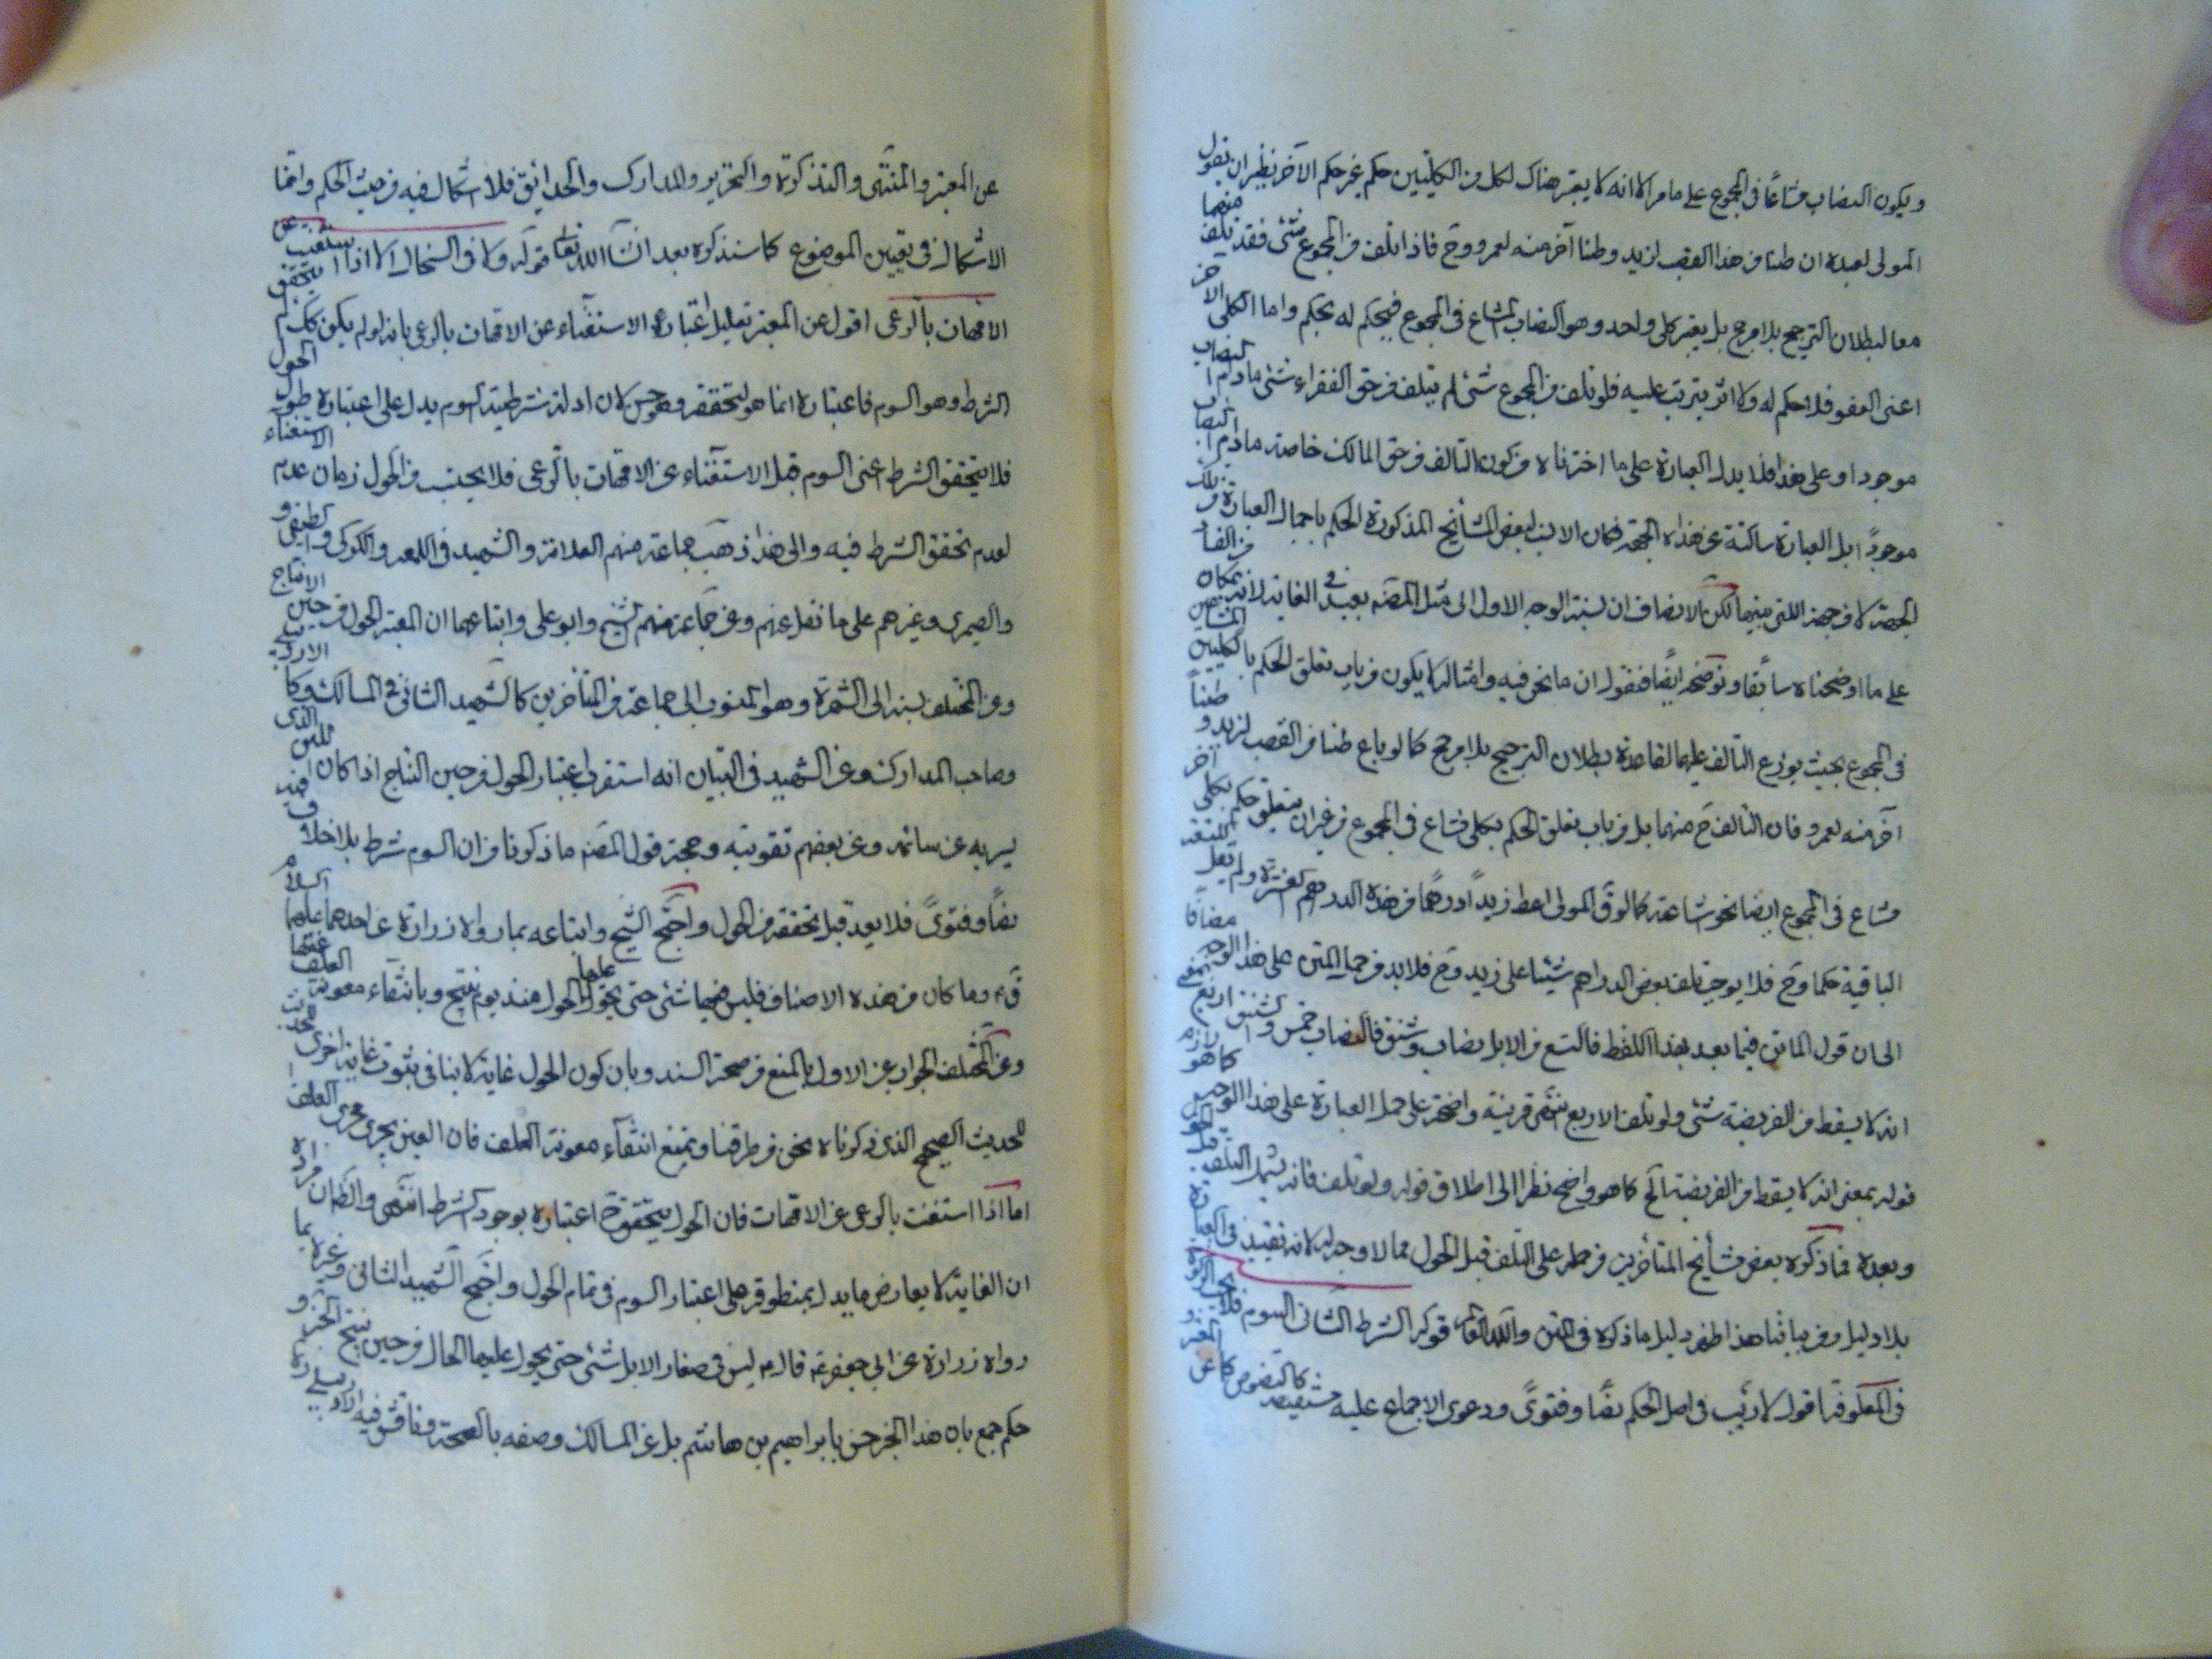 ويكون النصاب مشاعًا فى المجموع على ما مر الا انه لا يعتبر هناك لكل من الكليين حكم غير حكم الآخر نظير ان يقول
المولى لعبده ان طنا من هذا القصب لزيد وطنا آخر منه لعمرو وح فاذا تلف من المجموع شئى فقد تلف منهما
معا لبطلان الترجيح بلا مرجح بل يعتبر كلى واحد وهو النصاب المشاع فى المجموع فيحكم له بحكم واما الكلى الاخر
اعنى العفو فلا حكم له ولا اثر يترتب عليه فلو تلف من المجموع شئى لم يتلف من حق الفقراء شئى مادام النصاب
موجودا وعلى هذا فلا يدل العبارة على ما اخترناه من كون التالف من حق المالك خاصة مادام النصاب
موجودًا بل العبارة ساكتة عن هذه الجهة فكان الانسب لبعض المشايخ المذكورة الحكم باجمال العبارة من تلك
الجهة لا من جهة اللتى بينهما لكن الانصاف ان نسبة الوجه الاول الى مثل المصنه بعيد فى الغاية لانه بمكان من الفساد
على ما اوضحناه سابقا ونوضحه ايضًا فنقول ان ما نحن فيه وامثاله لا يكون من باب تعلق الحكم بالكليين المشاعين
فى المجموع بحيث يوزع التالف عليهما لقاعدة بطلان الترجيح بلا مرجح كما لو باع طنا من القصب لزيد و طنًا
آخر منه لعمرو فان التالف ح منهما بل من باب تعلق الحكم بكلى مشاع فى المجموع من غير ان يتعلق حكم بكلى آخر
مشاع فى المجموع ايضا نحو شاعته كما لو ق المولى اعط زيدًا درهمًا من هذه الدراهم العشرة ولم يجعل للتسعة
الباقية حكما وح فلا يوجب تلف بعض الدراهم شيئا على زيد وح فلابد من حمل المتن على هذا الوجه مضافا
الى ان قول الماتن فيما بعد بهذا اللفظ فالتسع من الابل نصاب وشنق فالنصاب خمس والشنق اربع
انه لا يسقط من الفريضة شئى ولو تلف الاربع انتهى قرينة واضحة على حمل العبارة على هذا الوجه
قوله بمعنى انه لا يسقط من الفريضة الخ كما هو واضح نظرا الى اطلاق قوله ولو تلف فانه يشمل التلف قبل الحول
وبعده فما ذكره بعض مشايخ المتأخرين من حمله على التلف قبل الحول مما لا وجه له لانه تقييد فى العبارة
بلا دليل ومن بياننا هذا اظهر دليل ما ذكره فى المتن والله العالم قوله الشرط الثانى السوم فلا يجب الزكوة
فى المعلوفة اقول لا ريب فى اصل الحكم نصًا وفتوىً ودعوى الاجماع عليه مستفيضة كالنصوص كما عن
عن المعتبر والمنتهى والتذكرة والتحرير والمدارك والحدائق فلا اشكال فيه من حيث الحكم وانما
الاشكال فى تعيين الموضوع كما سنذكره بعد انشآ الله تعالى قوله ولا فى السخال الا اذا استغنت عن
الامهات بالرعى اقول عن المعتبر تعليل اعتباره الاستغناء عن الامهات بالرعى بانه لو لم يكن كك لم يتحقق
الشرط وهو السوم فاعتباره انما هو لتحققه وهو حسن لان ادلة شرطية السوم يدل على اعتباره طول الحول
فلا يتحقق الشرط اعنى السوم قبل الاستغناء عن الامهات بالرعى فلا يحتسب من الحول زمان عدم الاستغناء
لعدم تحقق الشرط فيه والى هذا ذهب جماعة منهم العلامة والشهيد فى اللمعه والكركى والقطيفى و
والصيمرى وغيرهم على ما نقل عنهم وعن جماعة منهم الشيخ وابو على واتباعهما ان المعتبر الحول من حين الانتاج
وعن المختلف نسبته الى الشهرة وهو المنسوب الى جماعة من المتأخرين كالشهيد الثانى فى المسالك وكا الاردبيلى
وصاحب المدارك وعن الشهيد فى البيان انه استقرب اعتبار الحول من حين النتاج اذا كان اللبن الذى
يربه عن سائمة وعن بعضهم تقويته وحجة قول المصنه ما ذكرنا من ان السوم شرط بلا خلاف فيه
نصًا وفتوىً فلا يعد قبل تحققه من الحول واحتج الشيخ واتباعه بما رواه زرارة عن احدهما عليهما السلام
قء وما كان من هذه الاصناف فليس فيها شئى حتى يحول عليها الحول منذ يوم تنتج وبانتفاء معونة العلف عنها
وعن المختلف الجواب عن الاول بالمنع من صحة السند وبان كون الحول غاية لا ينافى ثبوت غاية اخرى
للحديث الصحيح الذى ذكرناه نحن من طرقنا ويمنع انتفآء معونة العلف فان العين يجرى مجرى العلف
اما اذا استغنت بالرعى عن الامهات فان الحول يتحقق ح اعتباره بوجود الشرط انتهى والظ ان مراده
ان الغاية لا يعارض ما يدل بمنطوقه على اعتبار السوم فى تمام الحول واحتج الشهيد الثانى وغيره بما
رواه زرارة عن ابى جعفر ع قال ع ليس فى صغار الابل شئى حتى يحول عليها الحال من حين تنتج الخبر و
حكم جمع بان هذا الخبر حسن بابراهيم بن هاشم بل عن المسالك وصفه بالصحة وناقش فيه الاردبيلى ره